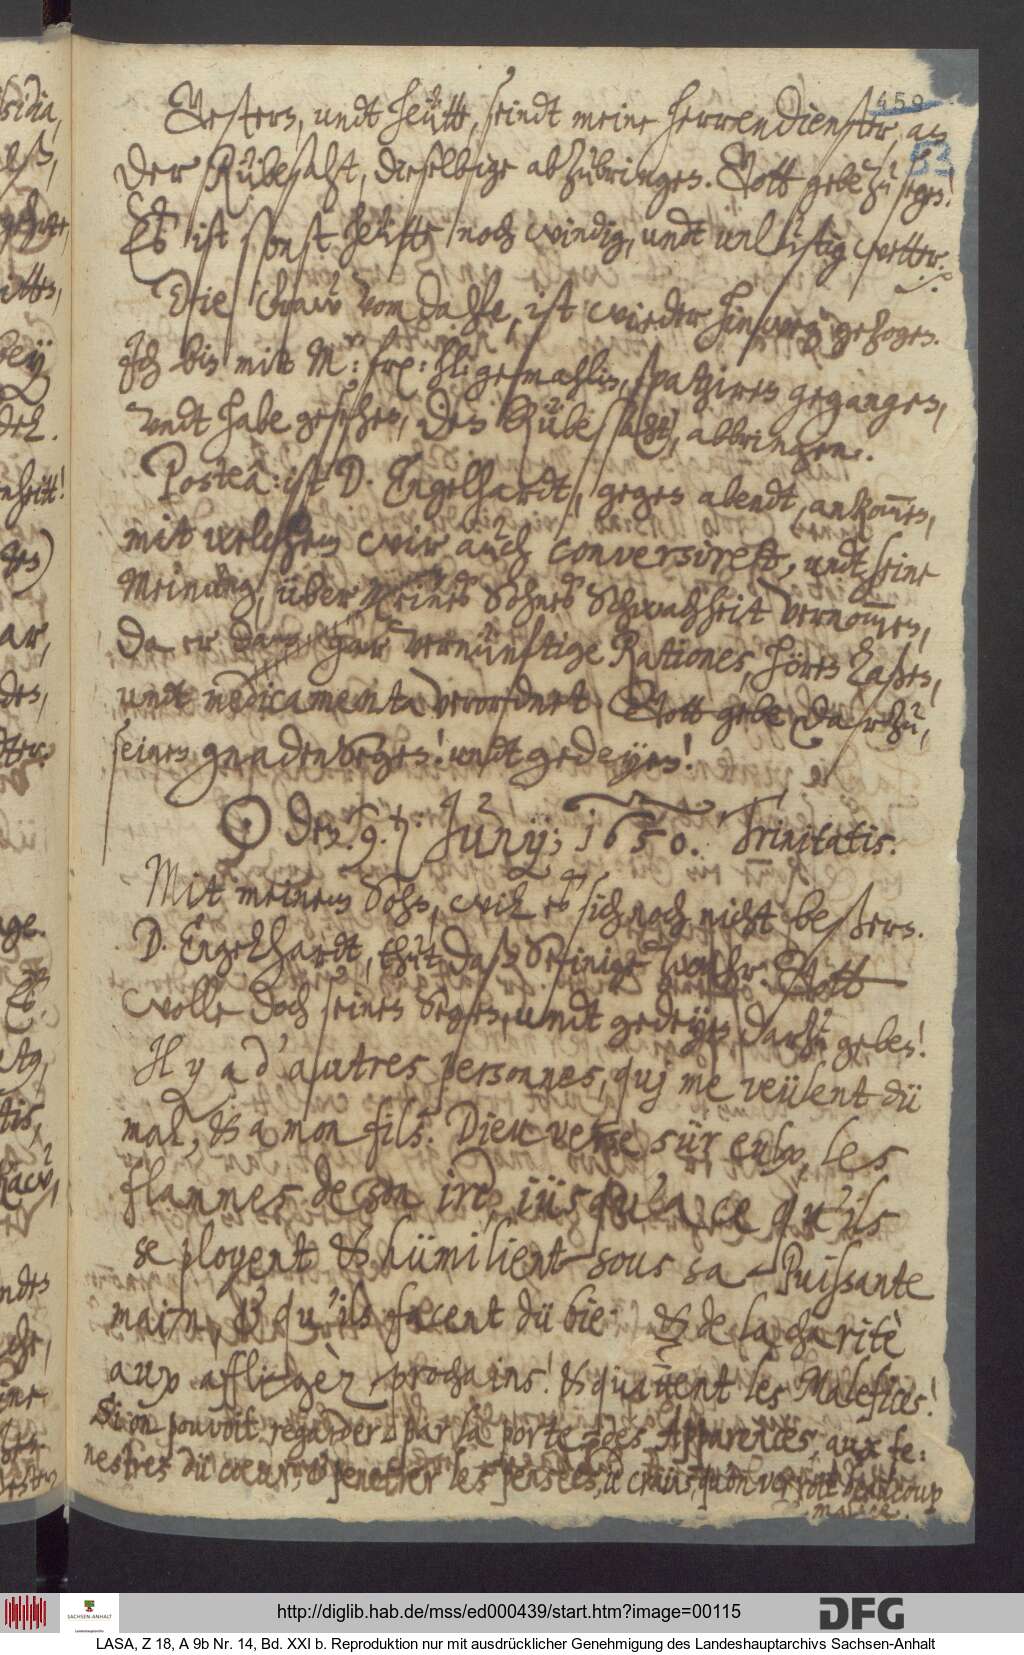 459
53
Gestern, undt heütt, seindt meine herrendienster, an
der Rübesaht, dieselbige abzubringen. Gott gebe zu segen!
Es ist sonst heütte noch windig, undt unlüstig wetter.
Die Fraw vom Dahle, ist wieder hinweg gezogen.
Ich bin mit M: fr: h: gemahlin, spatziren gegangen,
undt habe gesehen, den Rübesaht, abbringen.
Postea: ist D. Engelhardt, gegen abendt, ankommen,
mit welchem wir auch conversiret, undt seine
Meinung, über meines Sohnes Schwachheit vernommen,
da er dann gar vernünftige Rationes, hören laßen,
undt medicamenta verordnet. Gott gebe darzu,
seinen gnadenSegen! undt gedeyen!
☉ den 9. Junÿ; 1650. Trinitatis.
Mit meinem Sohn, will es sich noch nicht beßern.
D. Engelhardt, thut daß Seinige hierbey. Gott
wolle doch seinen Segen, undt gedeyen darzu geben!
Il y a d'autres personnes, quj me veülent dü
mal, & a mon fils. Dieu verse sür eulx, les
flammes de son ire, jüsqu'a ce qu'ils
se ployent & hümilient sous sa Puissante
main, & qu'ils facent dü bien & de la charitè
aux affligèz prochains! & quittent les Malefices!
Si on pouvoit regarder par la porte des Apparences, aux fe:
nestres dü coeur, & penetrer les pensèes, je crains, qu'on verroit beaucoup
malice.
http://diglib.hab.de/mss/ed000439/start.htm?image=00115
DFG
SACHSEN-ANHALT
LASA, Z 18, A 9b Nr. 14, Bd. XXI b. Reproduktion nur mit ausdrücklicher Genehmigung des Landeshauptarchivs Sachsen-Anhalt